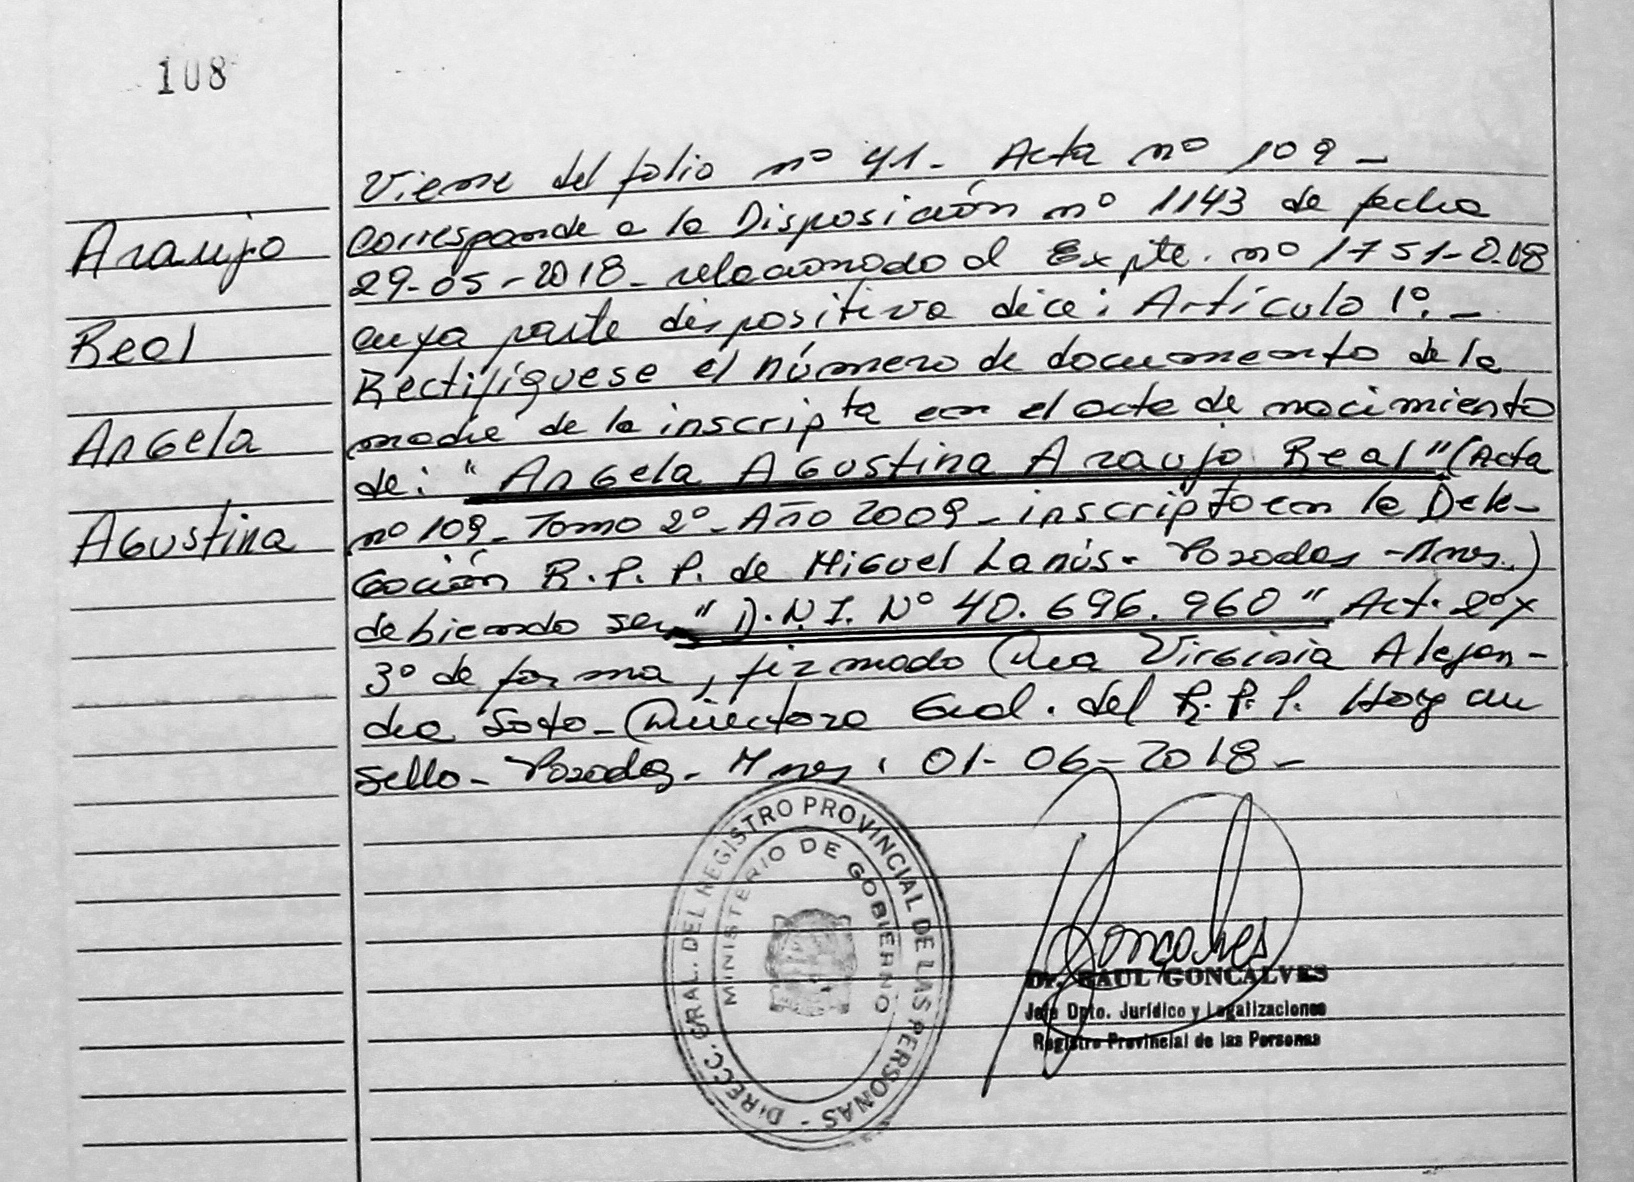 108
Araujo
Real
Angela
Agustina
Viene del folio nº 41- Acta nº 109-
Corresponde a la Disposición nº 1143 de fecha
29-05-2018- relacionado al Expte. nº 1751-D-18
cuya parte dispositiva dice: Artículo 1º.-
Rectifíquese el número de documento de la
madre de la inscripta en el acta de nacimiento
de: "Angela Agustina Araujo Real" (Acta
nº 109- Tomo 2º- Año 2009- inscripto en la Dele-
gación R.P.P. de Miguel Lanús- Posadas -Mnes.)
debiendo ser "D.N.I. Nº 40.696.960" Art. 2º y
3º de forma, firmado Dra Virginia Alejan-
dra Soto- Directora Gral. del R.P.P. Hay un
sello- Posadas- Mnes, 01-06-2018-
DIRECC. GRAL. DEL REGISTRO PROVINCIAL DE LAS PERSONAS -
MINISTERIO DE GOBIERNO
Goncalves
Dr. RAUL GONCALVES
Jefe Dpto. Jurídico y Legalizaciones
Registro Provincial de las Personas